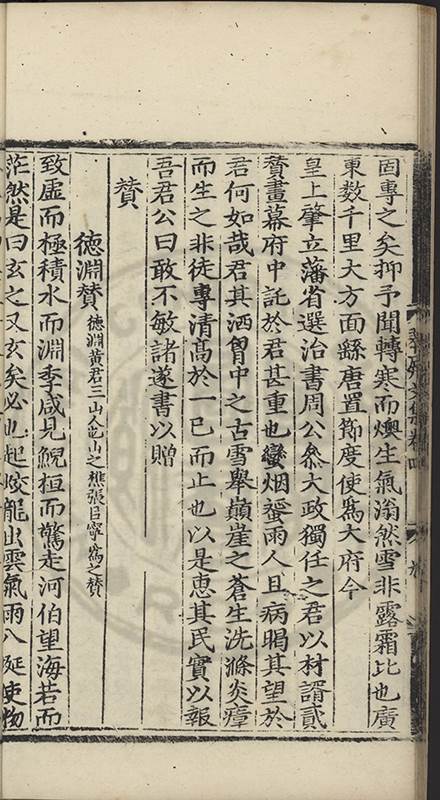 固專之矣抑予聞轉寒而燠生氣滃然雪非露霜比也廣
東數千里大方面繇唐置節度使爲大府今
皇上肇立藩省選治書周公叅大政獨任之君以材諝貳
賛畫幕府中託於君甚重也蠻烟蜑雨人且病暍其望於
君何如哉君其洒胷中之古雪舉巔崖之蒼生洗滌炎瘴
而生之非徒專清髙於一已而止也以是恵其民實以報
吾君公曰敢不敏諸遂書以贈
賛
德淵賛 德淵黄君三山人也山之樵張㠯寧爲之賛
致虛而極積水而淵季咸見鯢桓而驚走河伯望海若而
茫然是曰玄之又玄矣必也起蛟龍出雲氣雨八延使物